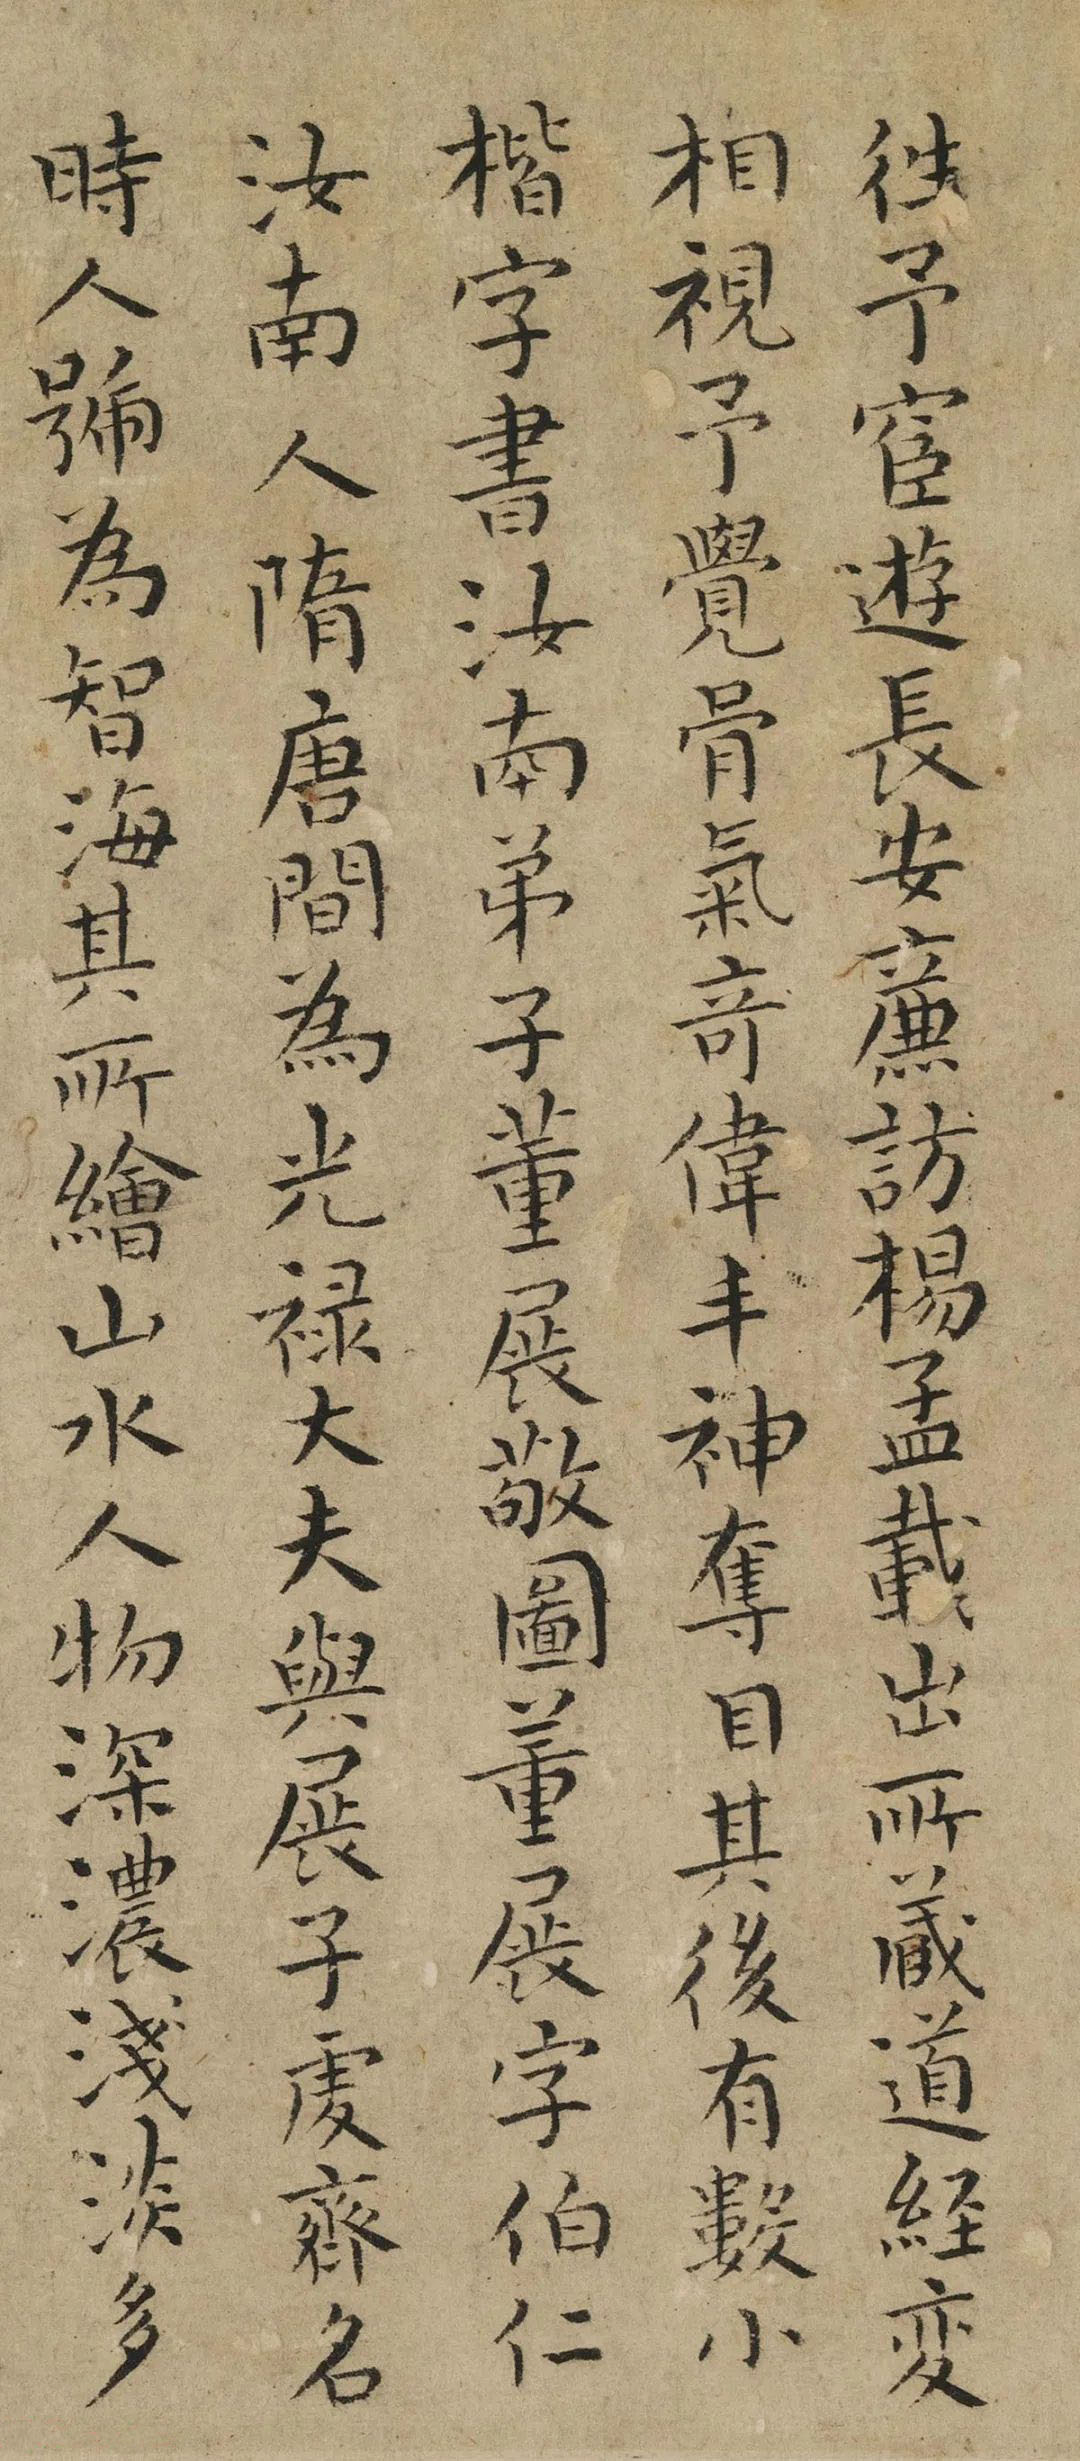 往予宦遊長安廉訪楊孟載出所藏道経変
相視予覺骨氣奇偉丰神奪目其後有數小
楷字書汝南弟子董展敬圖董展字伯仁
汝南人隋唐間為光禄大夫與展子虔齊名
時人號為智海其所繪山水人物深濃淺淡多